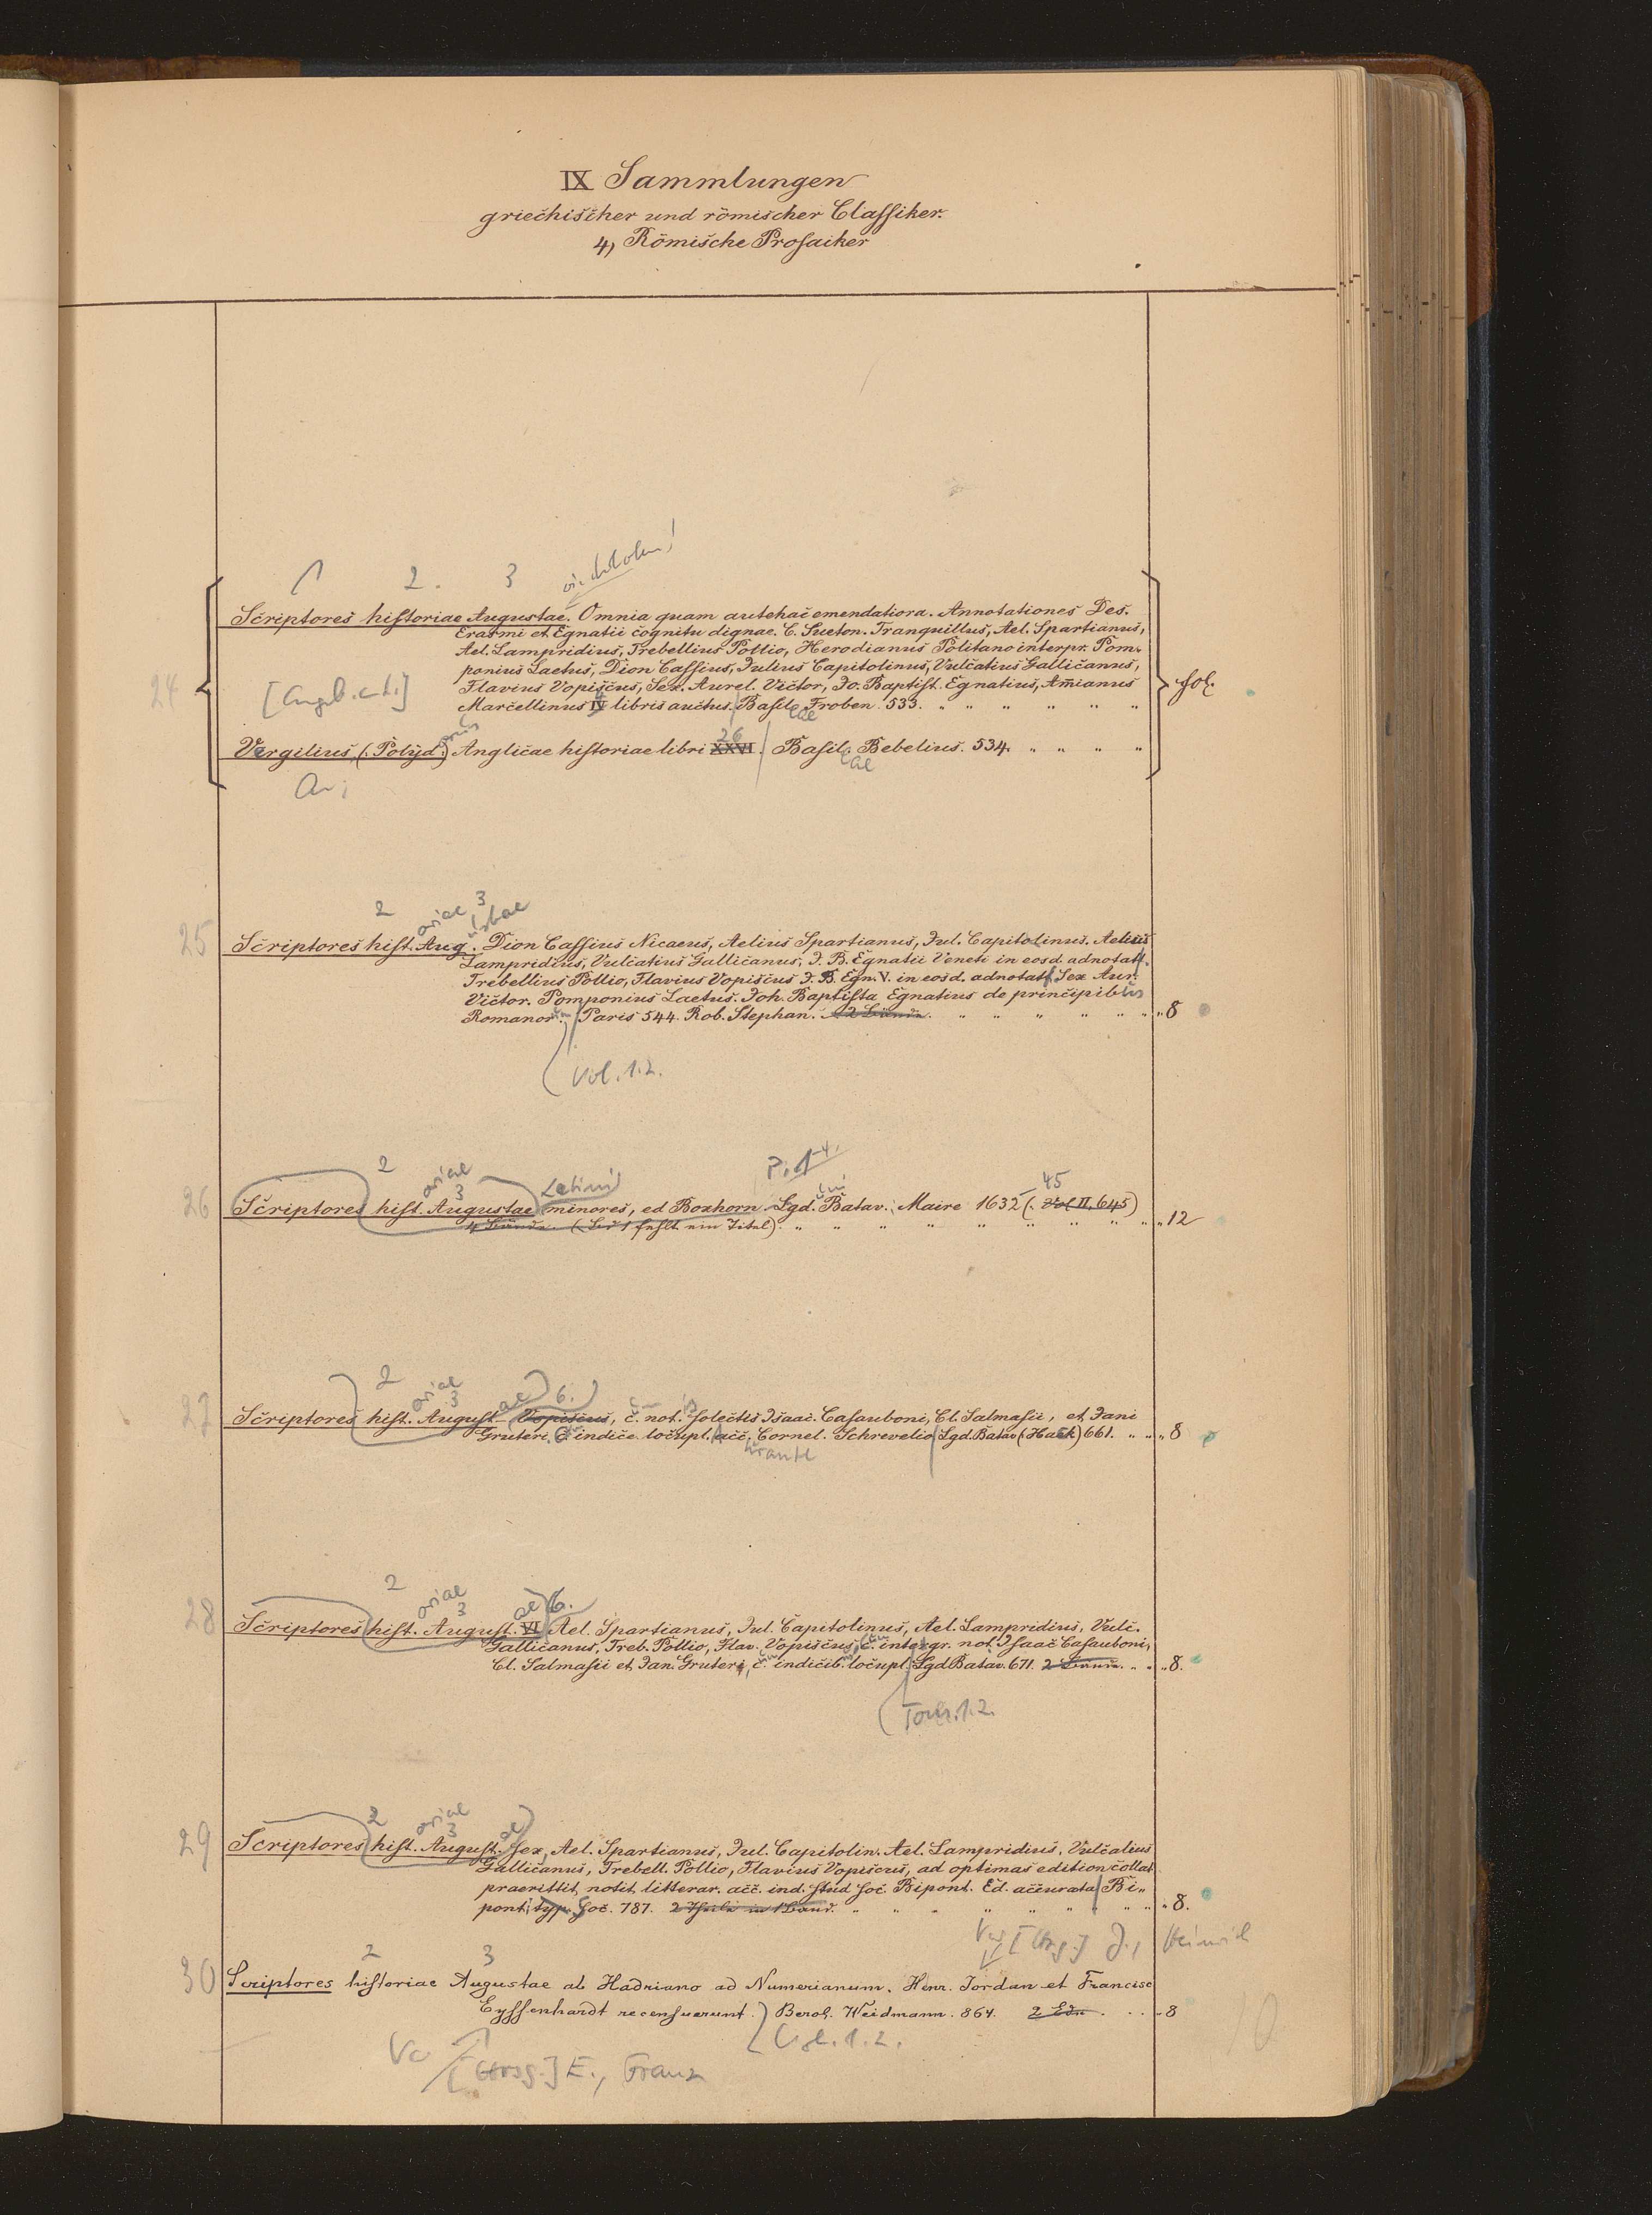 IX Sammlungen
griechischer und römischer Classiker.
4) Römische Prosaiker
1 2. 3
24
Scriptores historiae Augustae. Omnia quam antehac emendatiora. Annotationes Des.
Erasmi et Egnatii cognitu dignae. C. Sueton. Tranquillus, Ael. Spartianus,
Ael. Lampridius, Trebellius Pollio, Herodianus Politano interpr. Pom-
ponius Laetus, Dion Cassius, Julius Capitolinus, Vulcatius Gallicanus,
Flavius Vopiscus, Sex. Aurel. Victor, Jo. Baptist. Egnatius, Amianus
Marcellinus IV 4 libris auctus. Basileae Froben. 533. " " " " " " fol.
Vergilius, (Polyd.) Anglicae historiae libri XXVI 26. Basil. Bebelius. 534. " " " "
eae
2 3
oriae ustae
25 Scriptores hist. Aug. Dion Cassius Nicaeus, Aelius Spartianus, Jul. Capitolinus. Aelius
Lampridius, Vulcatius Gallicanus, J. B. Egnatii Veneti in eosd. adnotatt.
Trebellius Pollio, Flavius Vopiscus J. B. Egn. V. in eosd. adnotatt. Sex Aur.
Victor. Pomponius Laetus. Joh. Baptista Egnatius de principibus
Romanor. Paris 544. Rob. Stephan. 2 Bände. " " " " " " "8
Vol. 1.2.
2 oriae 3 Latini P. 1-4.
26 Scriptores hist. Augustae minores, ed Boxhorn Lgd. Batav. Maire 1632 (. Vol II. 645) 45
4 Bände. (Bd 1 fehlt ein Titel). " " " " " " " " "12
2 oriae 3 ae 6.
27 Scriptores hist. August Vopiscus, c. not. selectis Isaac. Casauboni, Cl. Salmasii, et Jani
Gruteri. C. indice locupl. acc. Cornel. Schrevelio Lgd. Batav (Hack) 661. " " "8
urante
2 oriae 3 ae 6.
28 Scriptores hist. August. VI Ael. Spartianus, Jul. Capitolinus, Ael. Lampridius, Vulc.
Gallicanus, Treb. Pollio, Flav. Vopiscus, c. integr. not. Isaac Casauboni,
Cl. Salmasii et Jan. Gruteri, c. indicib. locupl. Lgd Batav. 671. 2 Bände. " " "8.
Tom. 1.2.
2 oriae 3 ae
29 Scriptores hist. August. sex, Ael. Spartianus, Jul. Capitolin. Ael. Lampridius, Vulcatius
Gallicanus, Trebell. Pollio, Flavius Vopiscus, ad optimas edition collat
praemittit, notit. litterar. acc. ind. stud soc. Bipont. Ed. accurata Bi-
ponti, typ. Soc. 787. 2 Theile in 1 Band. " " " " " " " " "8.
Vw [Hrsg.] J., Heinrich
2 3
30 Scriptores historiae Augustae ab Hadriano ad Numerianum. Henr. Jordan et Francisc
Eyssenhardt recensuerunt. Berol. Weidmann. 864. 2 Bde. . . "8
Vol. 1.2.
Vw [Hrsg.] E., Franz
10